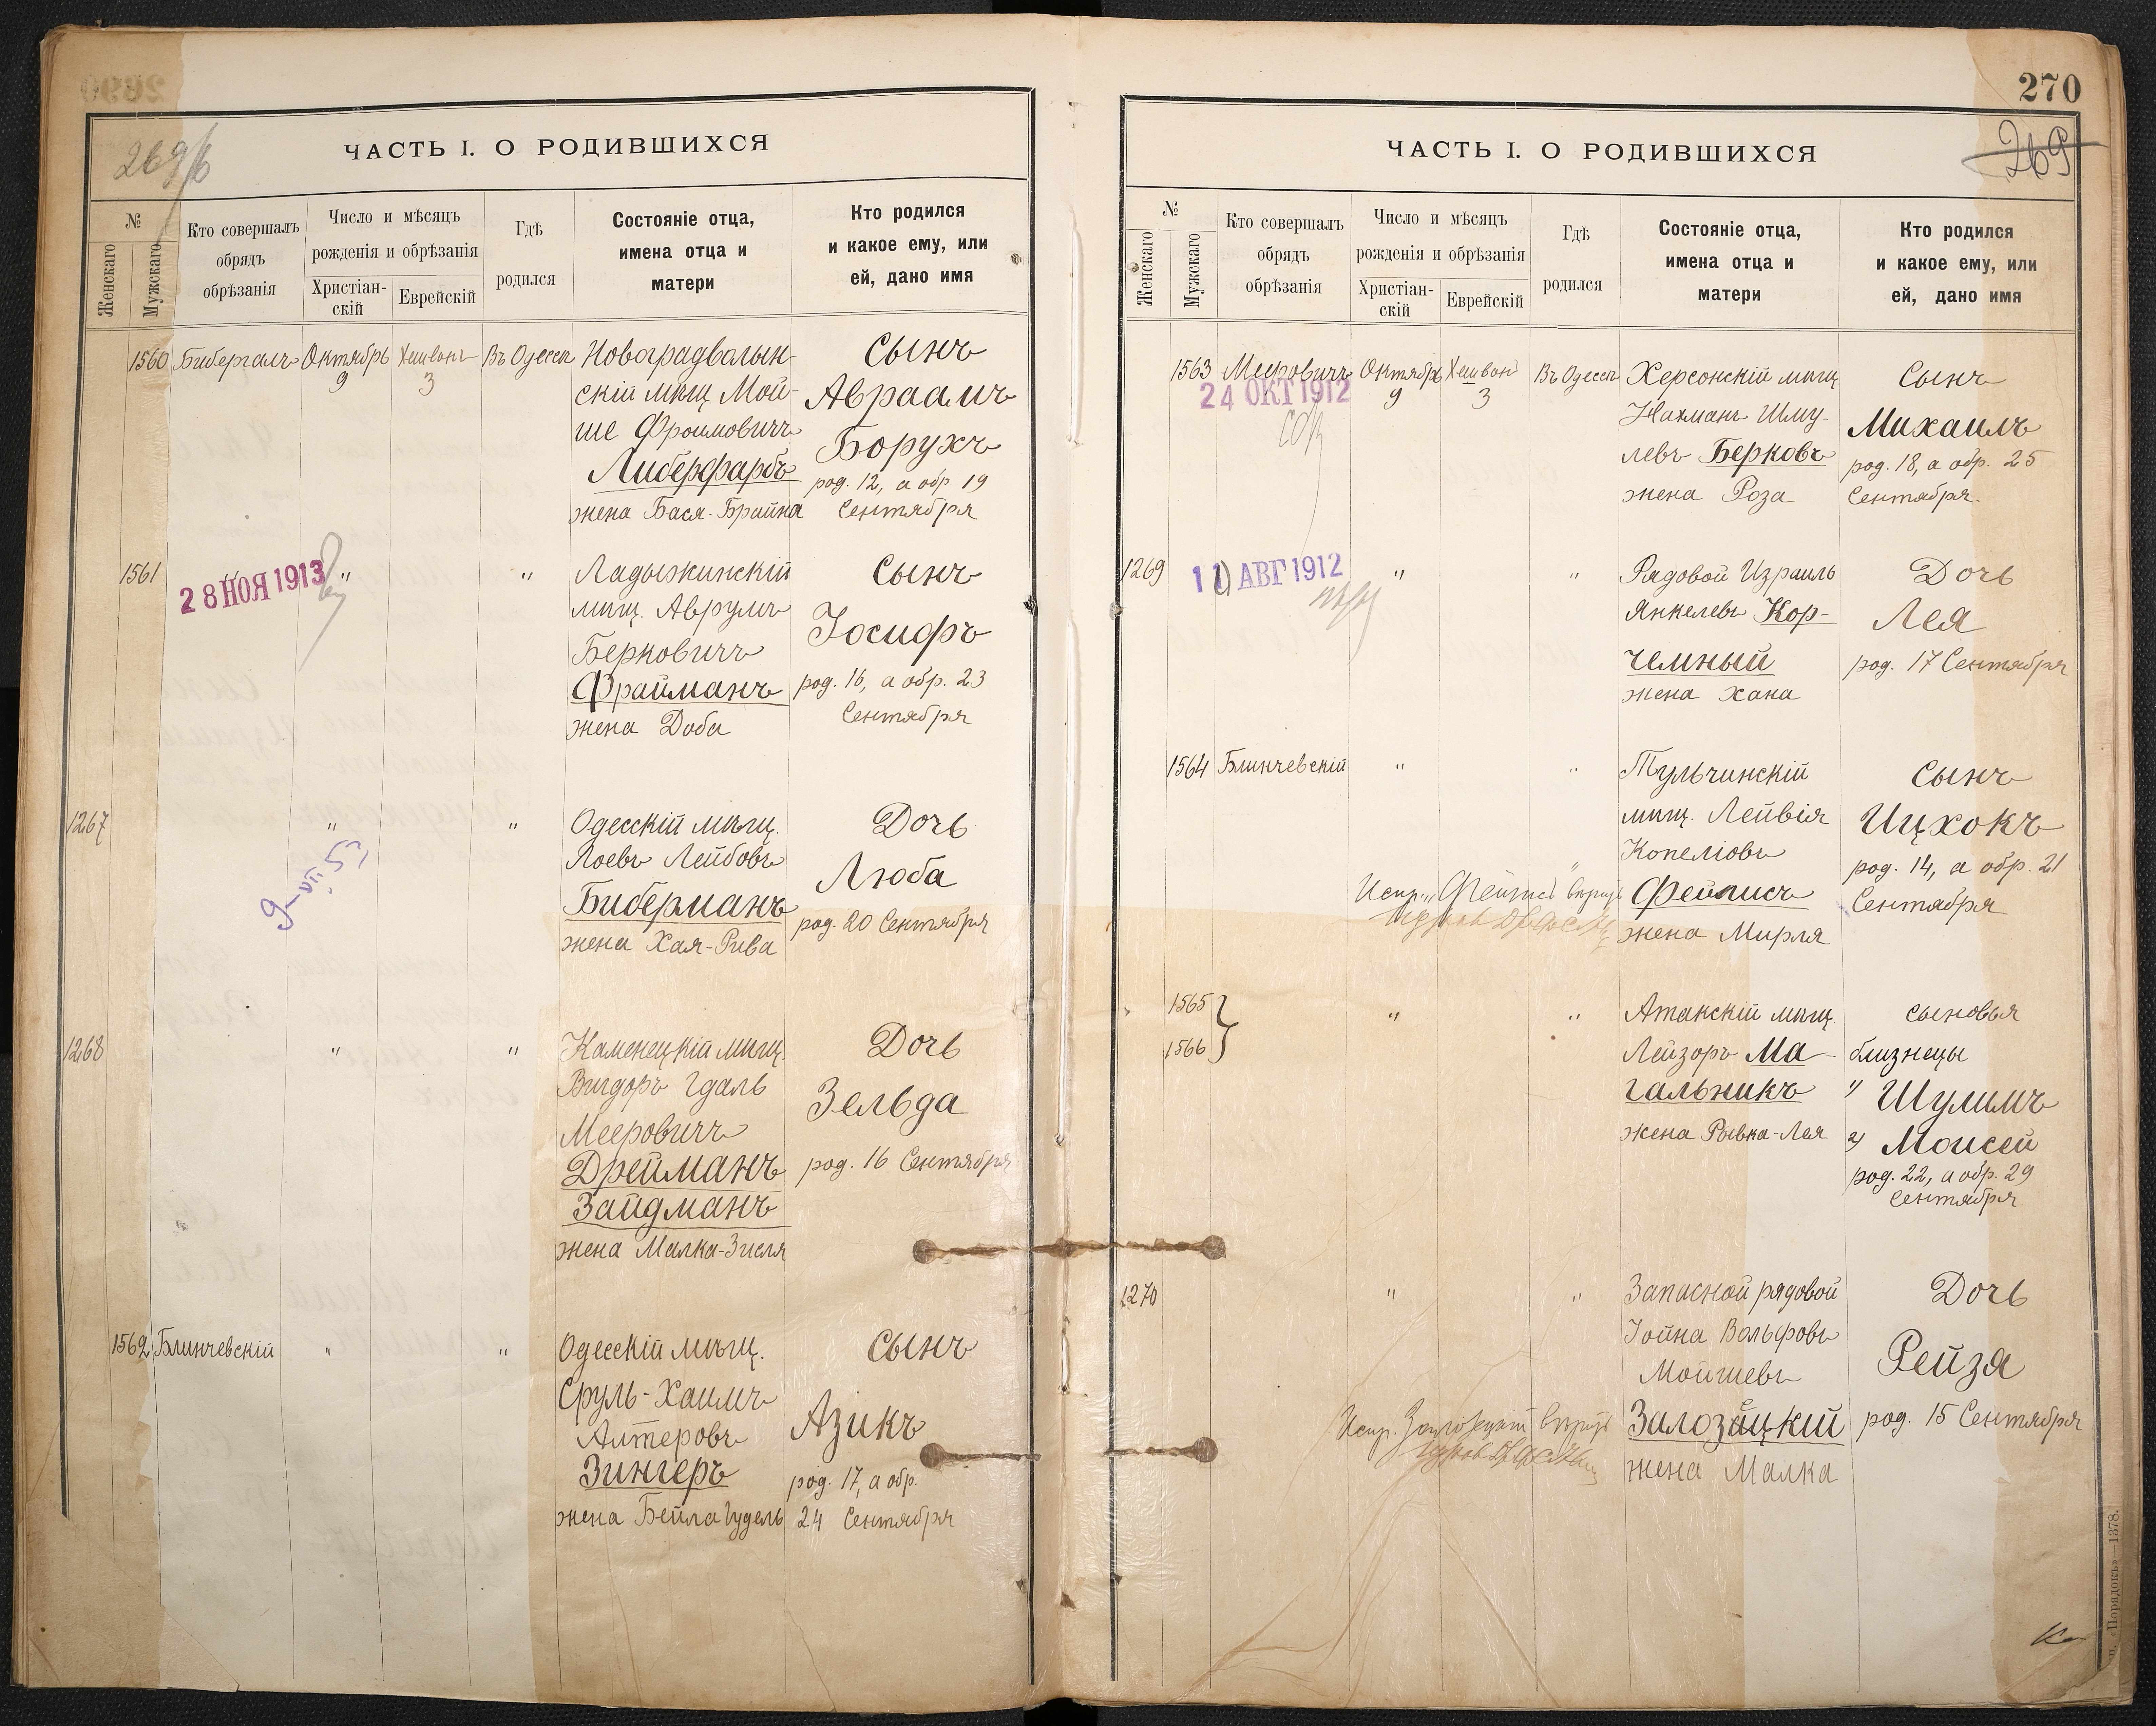 269/б
ЧАСТЬ I. О РОДИВШИХСЯ
№
Женскаго
Мужскаго
Кто совершалъ
обрядъ
обрѣзанія
Число и мѣсяцъ
рожденія и обрѣзанія
Христіан-
скій
Еврейскій
Гдѣ
родился
Состояніе отца,
имена отца и
матери
Кто родился
и какое ему, или
ей, дано имя
1560 Бибергалъ Октябрь 9 Хешванъ 3 Въ Одессѣ
Новоградволын-
скій мѣщ. Мой-
ше Фроимовичъ
Либерфарбъ
жена Бася-Брайна
Сынъ
Авраамъ
Борухъ
род. 12, а обр 19
Сентября
1561 " "
28 НОЯ 1913
Ладыжинскій
мѣщ. Аврумъ
Берковичъ
Фрайманъ
жена Доба
Сынъ
Іосифъ
род. 16, а обр. 23
Сентября
1267 " "
9-VII.53
Одесскій мѣщ.
Лейбовъ
Биберманъ
жена Хая-Рива
Дочь
Люба
род. 20 Сентября
1268 " "
Каменецкій мѣщ.
Вигдоръ Гдаль
Мееровичъ
Дрейманъ
Зайдманъ
жена Малка-Зисля
Дочь
Зельда
род. 16 Сентября
1562 Блинчевскій " "
Одесскій мѣщ.
Сруль-Хаимъ
Алтеровъ
Зингеръ
жена Бейла Гудель
Сынъ
Азикъ
род. 17, а обр.
24 Сентября
270
269
ЧАСТЬ I. О РОДИВШИХСЯ
№
Женскаго
Мужскаго
Кто совершалъ
обрядъ
обрѣзанія
Число и мѣсяцъ
рожденія и обрѣзанія
Христіан-
скій
Еврейскій
Гдѣ
родился
Состояніе отца,
имена отца и
матери
Кто родился
и какое ему, или
ей, дано имя
1563 Мееровичъ Октябрь 9 Хешван 3 Въ Одессѣ
24 ОКТ 1912
Херсонскій мѣщ.
Нахманъ Шму-
левъ Берковъ
жена Роза
Сынъ
Михаилъ
род. 18, а обр. 25
Сентября.
1269 " "
АВГ 1912
Рядовой Израиль
Янкелевъ Кор-
чемный
жена Хана
Дочь
Лея
род. 17 Сентября
1564 Блинчевскій " "
Тульчинскій
мѣщ. Лейвія
Копеліовъ
Фейгисъ
жена Мирля
Сынъ
Ицхокъ
род. 14, а обр. 21
Сентября
Испр. „Фейгисъ" вѣрить
1565
1566 " "
Атакскій мѣщ.
Лейзоръ Ма-
гальникъ
жена Рывка-Лея
Сыновья
близнецы
1) Шулимъ
2) Моисей
род. 22, а обр. 29
Сентября
1270 " "
Запасной рядовой
Іойна Вольфовъ
Мойшевъ
Залозецкій
жена Малка
Дочь
Рейза
род. 15 Сентября
Испр. Залозецкій вѣрить
«Порядокъ»—1378.